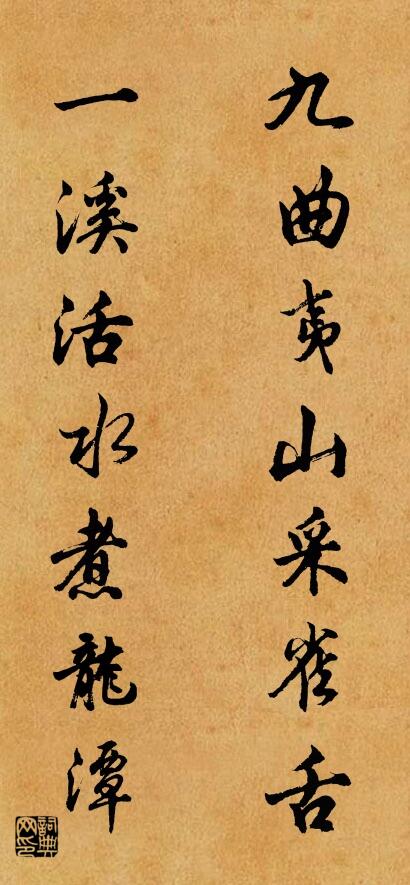 九曲夷山采雀舌
一溪活水煮龍潭
詞典
网印